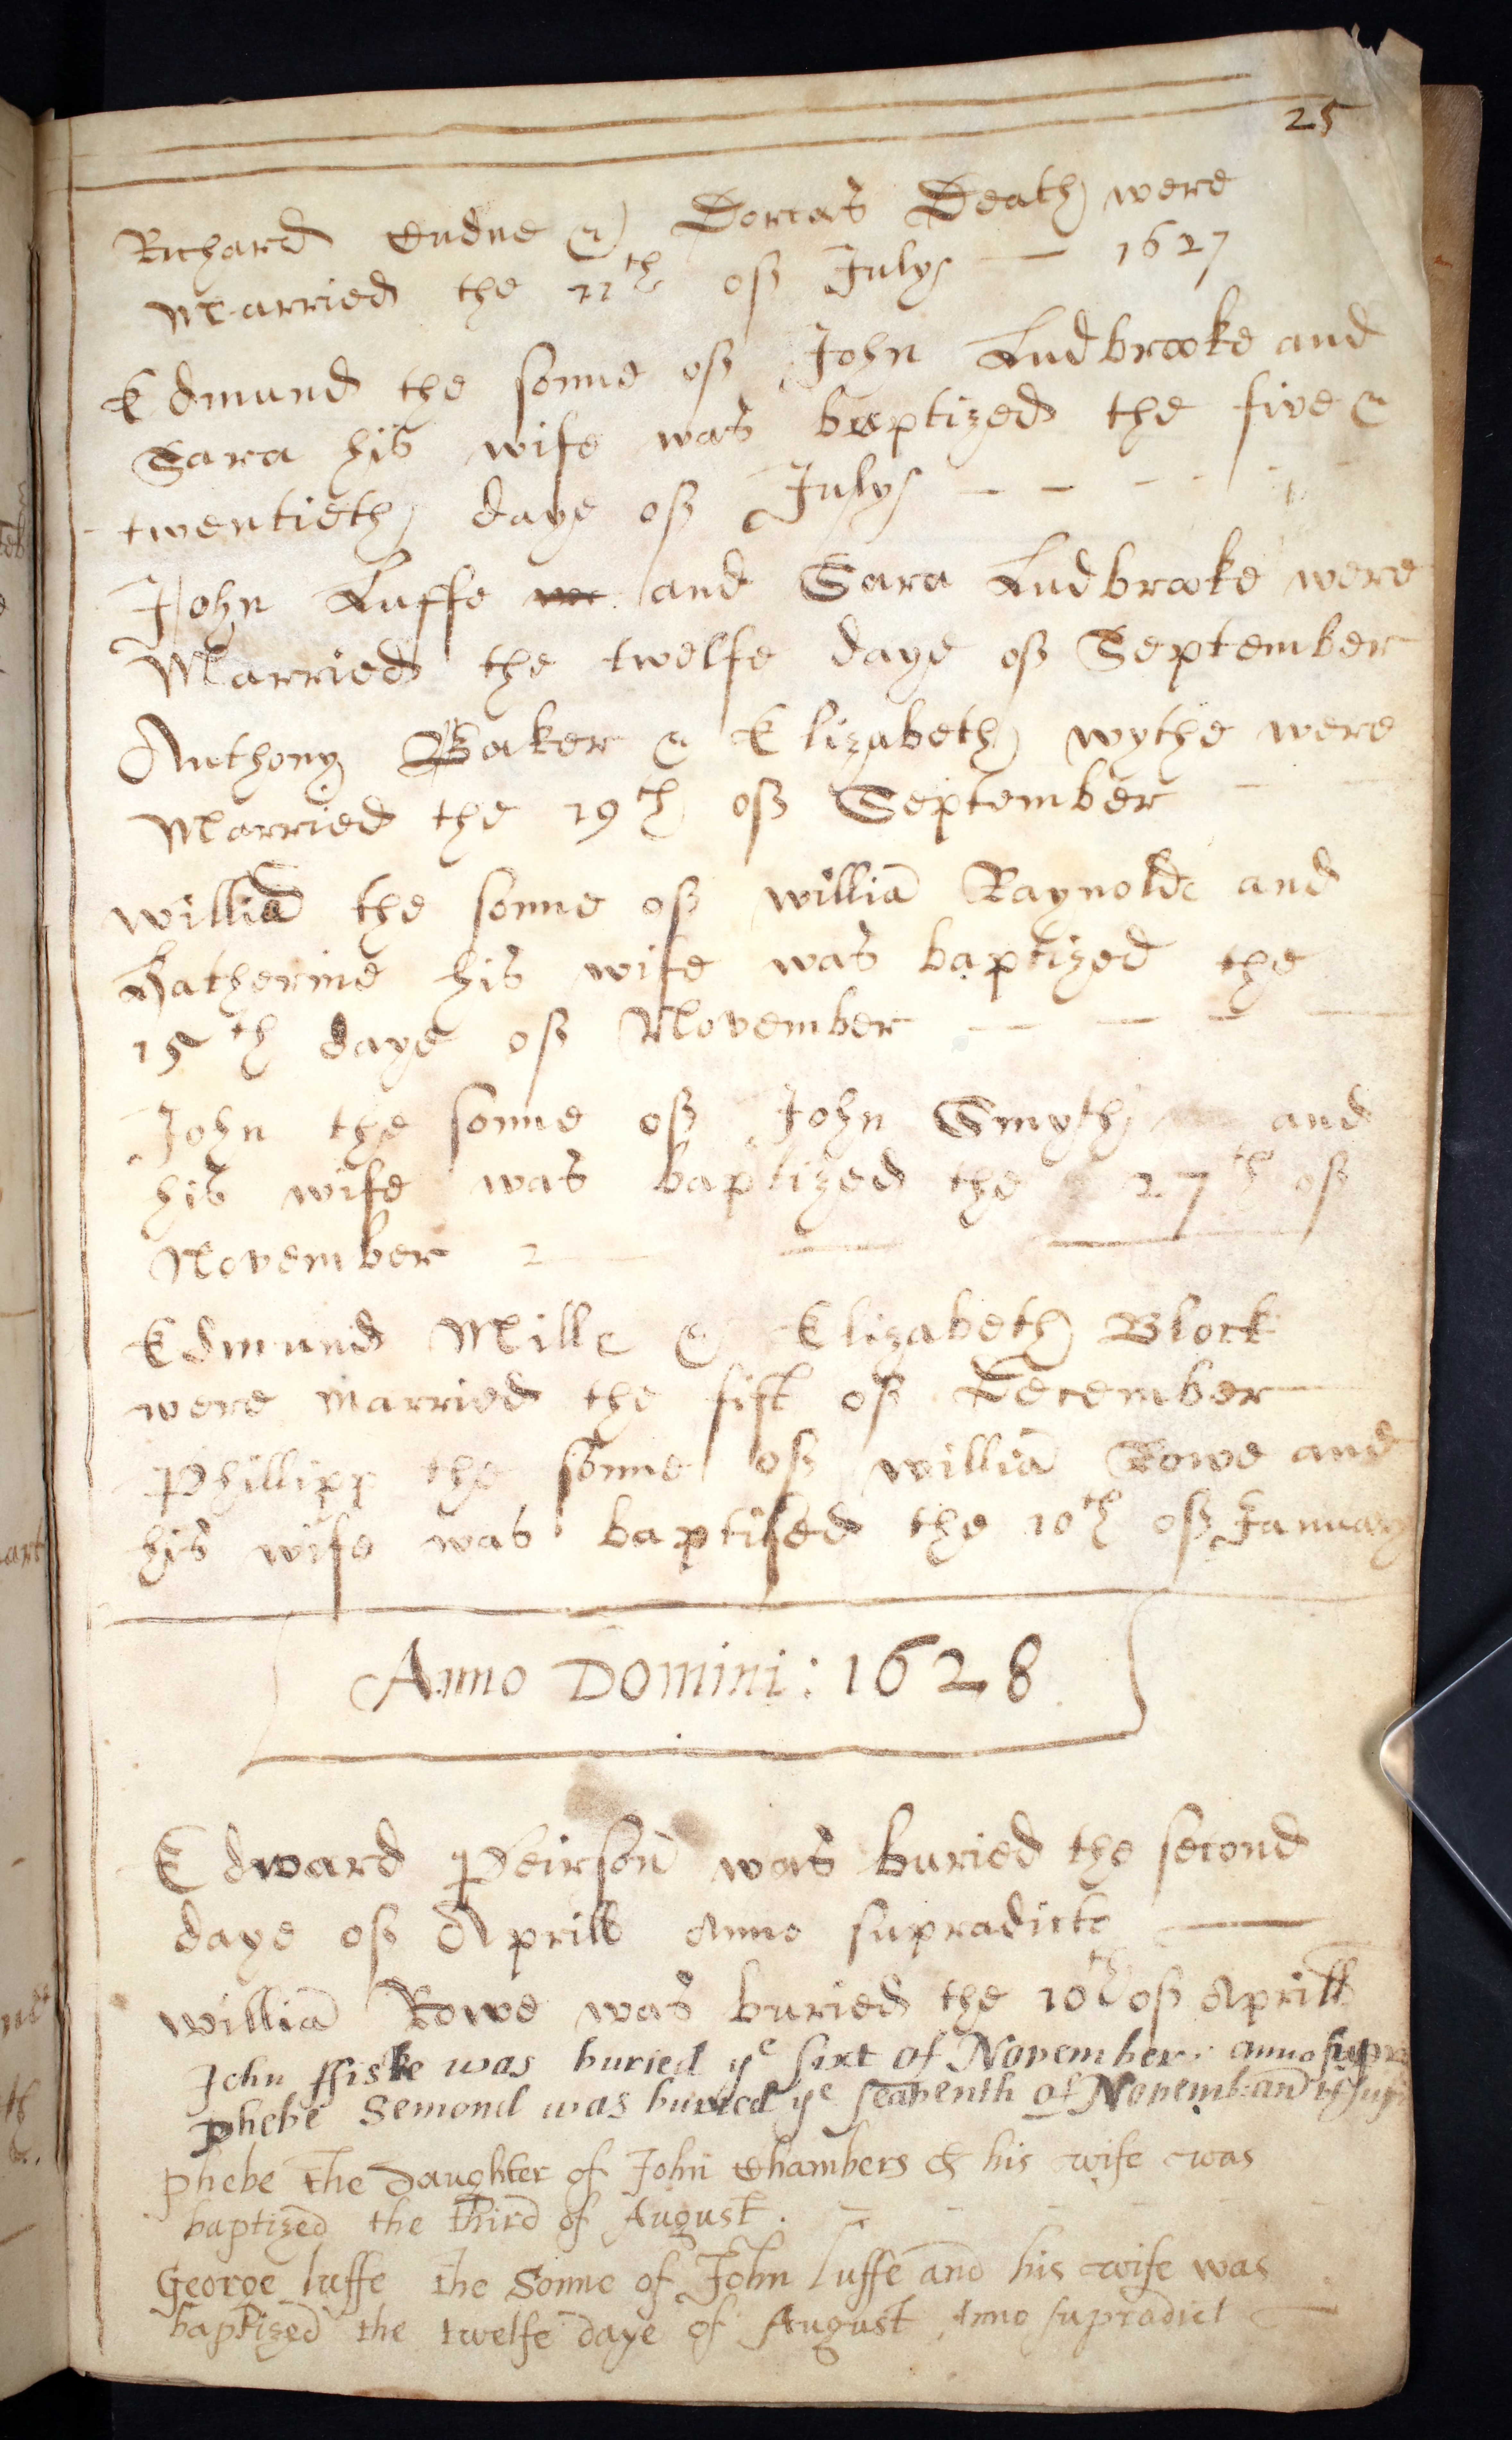 25
Richard Dorcas Death were
Married the 11th of July — 1627
Edmund the sonne of John Ludbrooke and
Sara his wife was baptized the five &
twentieth daye of July - - - -
John Luffe and Sara Ludbrooke were
Married the twelfe daye of September
Anthony Baker & Elizabeth wythe were
Married the 19th of September
Williā the sonne of williā Raynolds and
Katherine his wife was baptized the
15th daye of November — — — —
John the sonne of John Smyth and
his wife was baptized the 27th of
November
Edmund Mills & Elizabeth Block
were married the fift of December
Phillipp the sonne of williā Rowe and
his wife was baptised the 10th of January
Anno Domini: 1628
Edward Peirson was buried the second
daye of Aprill Anno supradicto
Williā Rowe was buried the 10th of Aprill
John ffiske was buried ye sixt of November anno supra
Phebe Semond was buried ye seaventh of Novemb:
Phebe the Daughter of John Chambers & his wife was
baptized the third of August.
George luffe the Sonne of John luffe and his wife was
baptized the twelfe daye of August Anno supradict